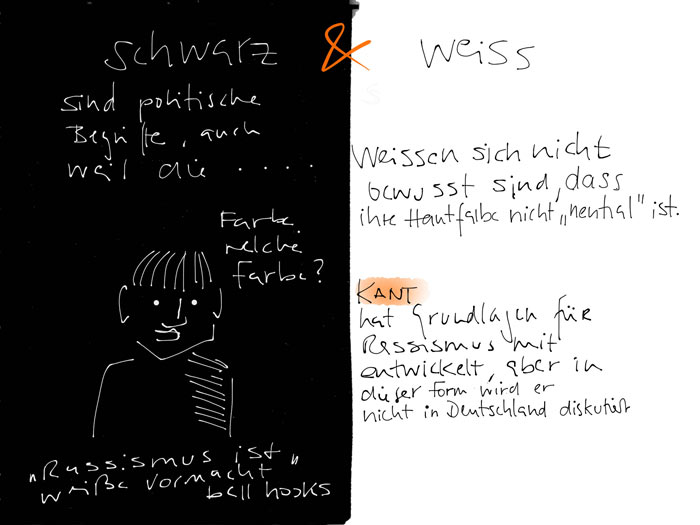 schwarz & weiss
sind politische
Begriffe, auch
weil die ....
Weissen sich nicht
bewusst sind, dass
ihre Hautfarbe nicht „neutral" ist.
Farbe.
welche
Farbe?
KANT
hat Grundlagen für
Rassismus mit
entwickelt, aber in
dieser Form wird er
nicht in Deutschland diskutiert
„Rassismus ist
weiße vormacht"
bell hooks